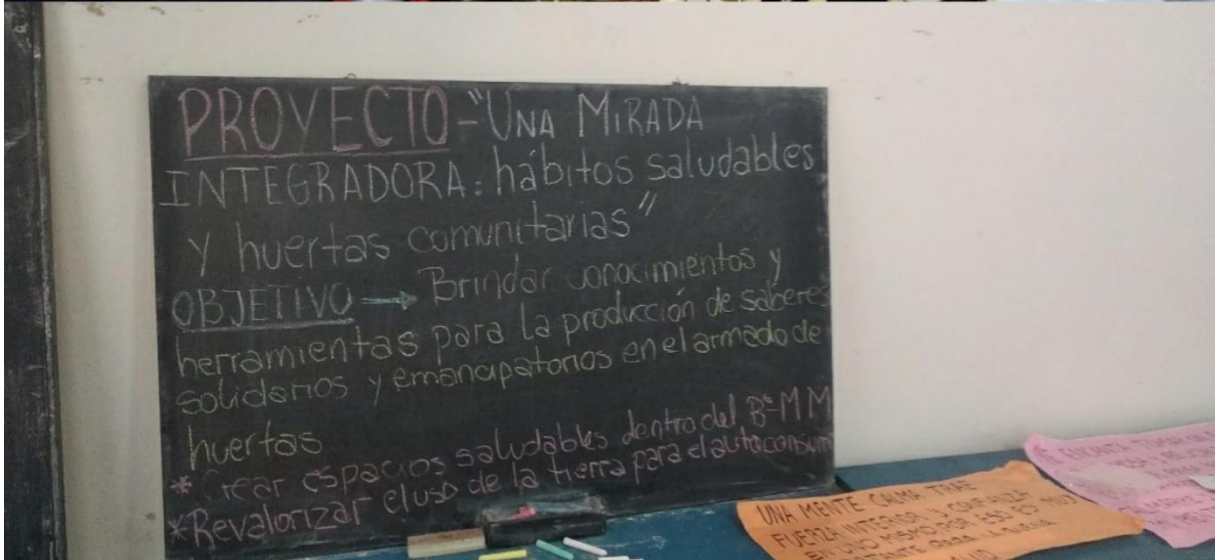 PROYECTO - "UNA MIRADA
INTEGRADORA: hábitos saludables
y huertas comunitarias"
OBJETIVO → Brindar conocimientos y
herramientas para la producción de saberes
solidarios y emancipatorios en el armado de
huertas
* Crear espacios saludables dentro del B° MM
* Revalorizar el uso de la tierra para el autoconsum
UNA MENTE CALMA TRAE
FUERZA INTERIOR Y CONFIANZA
EN UNO MISMO POR ESO ES MUY